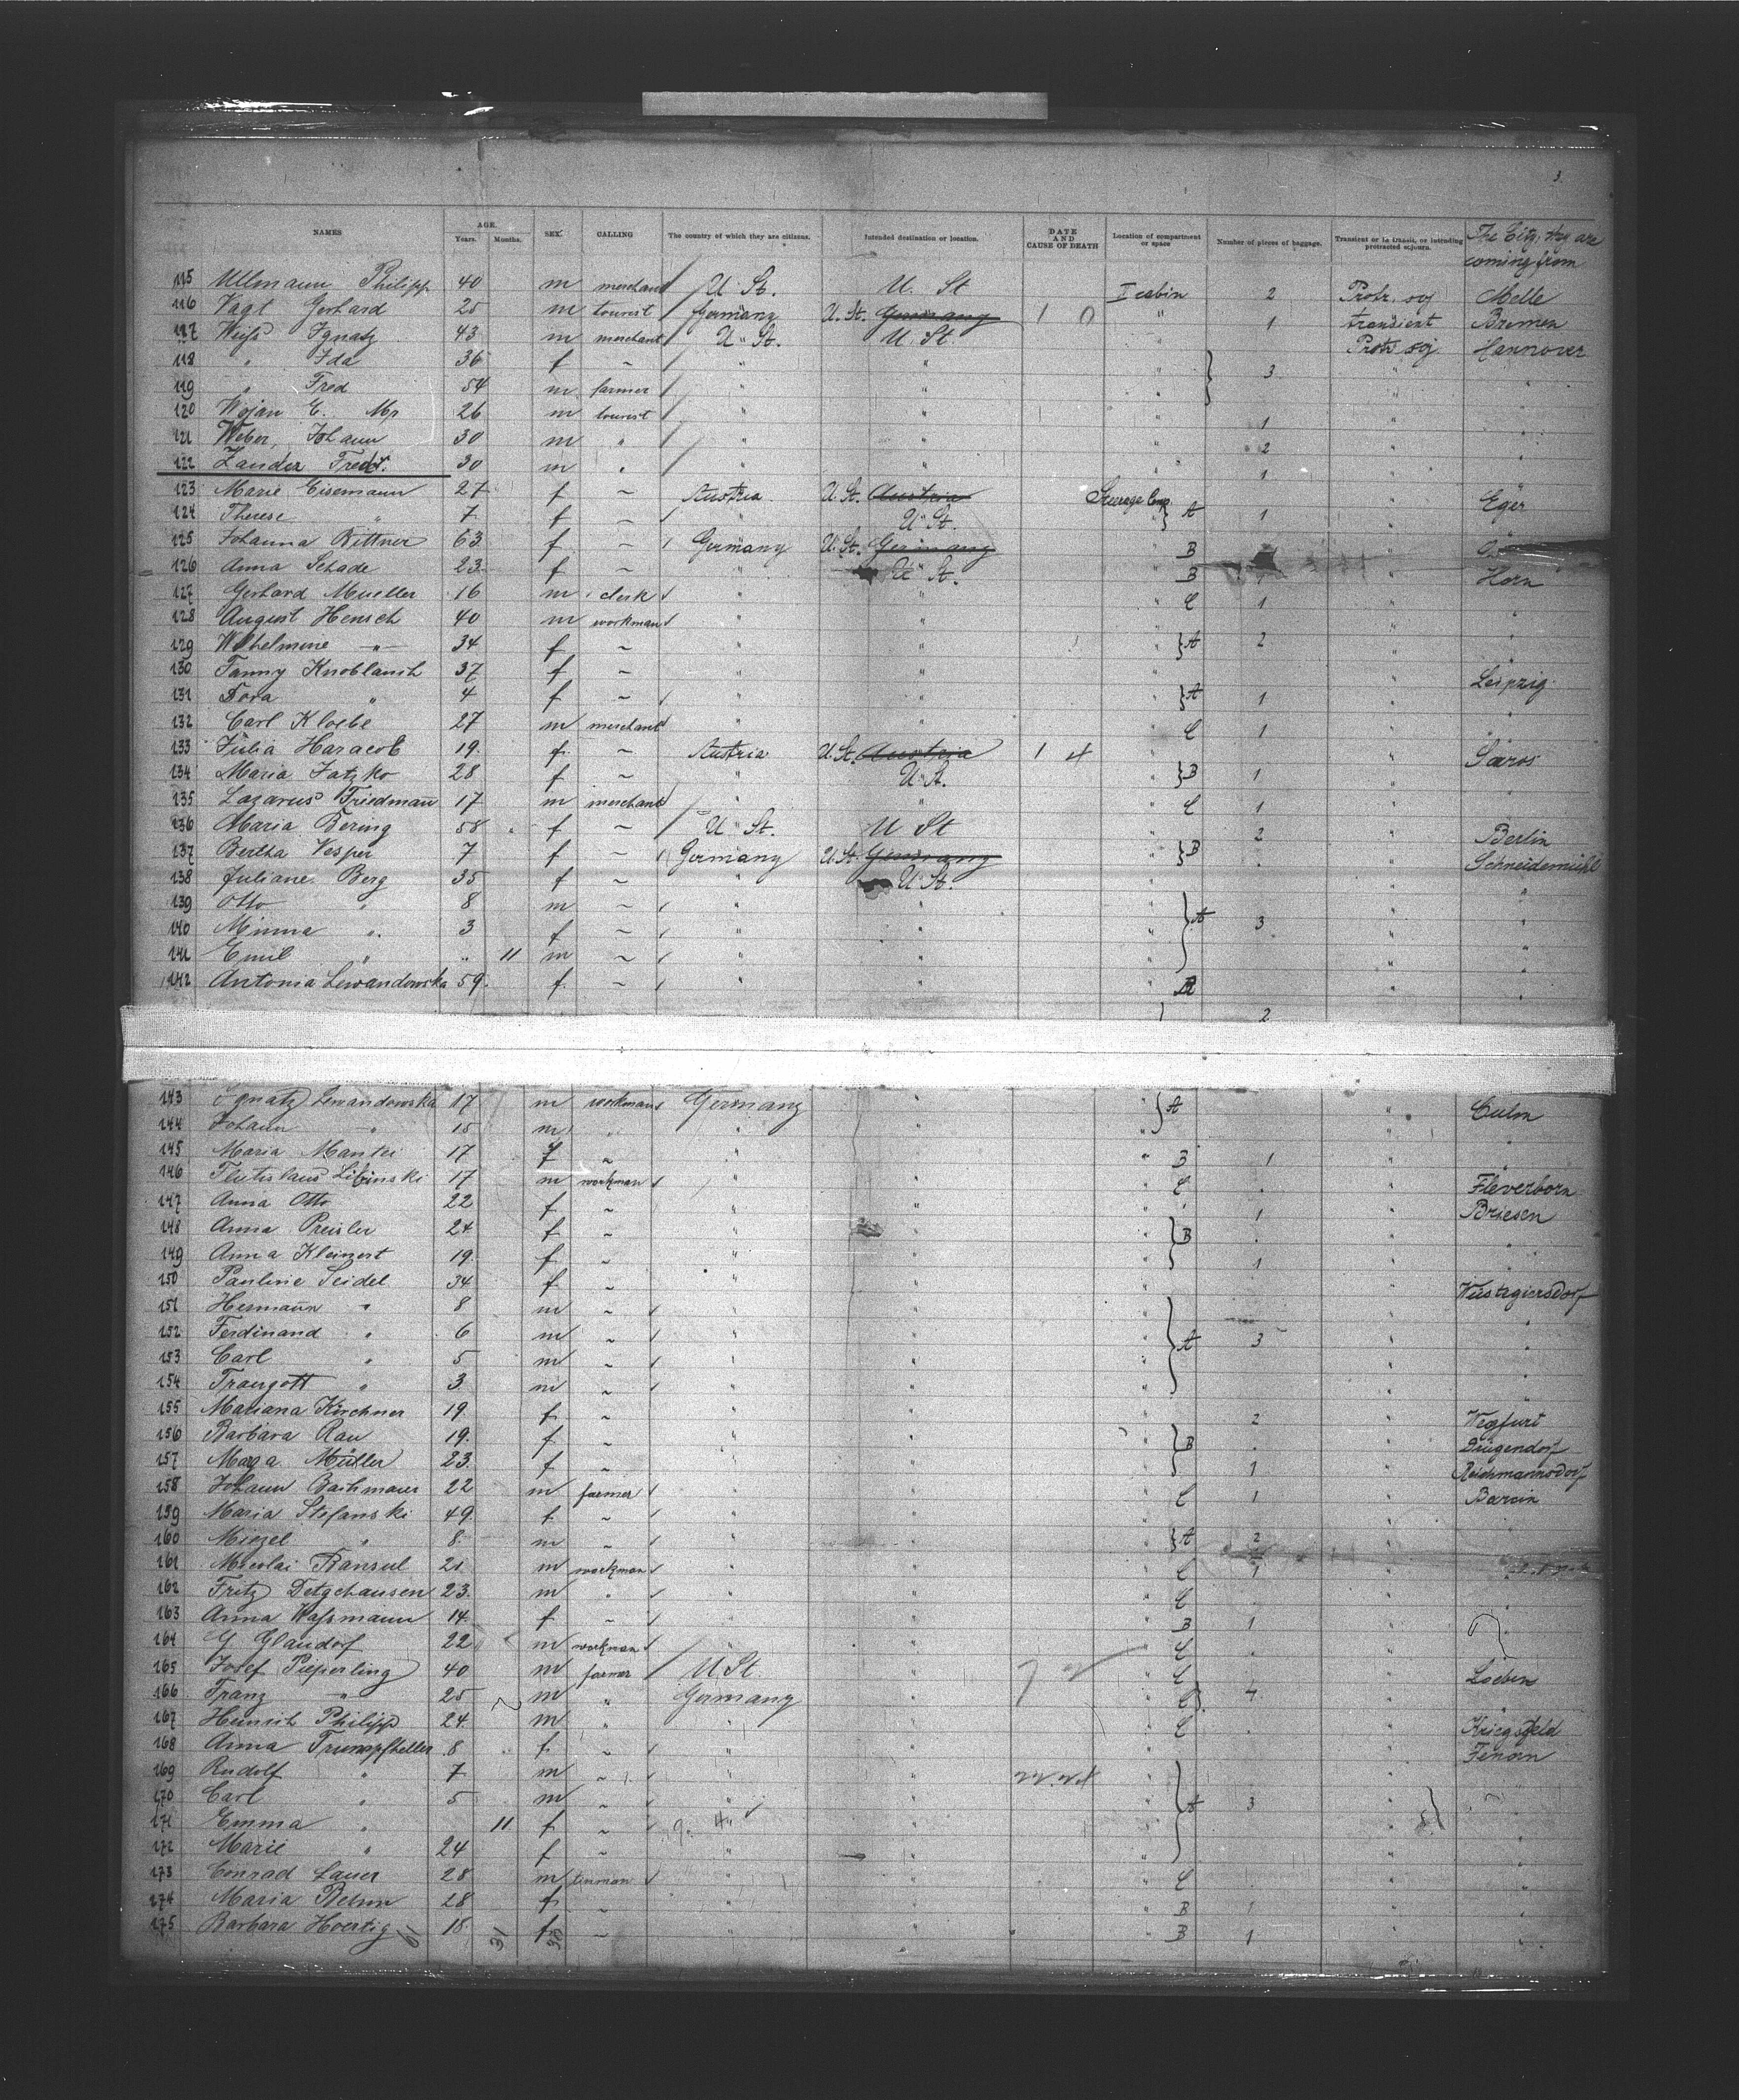 3.
NAMES AGE. Years. Months. SEX. CALLING The country of which they are citizens. Intended destination or location. DATE AND CAUSE OF DEATH Location of compartment or space Number of pieces of baggage. Transient or in transit, or intending protracted sojourn. The City, they are coming from
115 Ullmann Philipp 40 m merchant U. St. U. St II cabin 2 Protr. soj Melle
116 Vagt Gerhard 25 m tourist Germany U. St. Germany 1 0 " 1 transient Bremen
117 Weiss Ignatz 43 m merchant U. St. U. St. " Protr soj Hannover
118 " Ida 36 f ~ " " " 3 " "
119 " Fred 54 m farmer " " " " "
120 Wojan E. Mr 26 m tourist " " " 1 " "
121 Weber, Johann 30 m " " " " 2 " "
122 Zander Fredr. 30 m " " " " 1 " "
123 Marie Eisemann 27 f ~ Austria U. St. Austria Steerage Comp. " Eger
124 Therese " 7 f ~ " U. St. " A 1 " "
125 Johanna Bittner 63 f ~ Germany U. St. Germany " B "
126 Anna Schade 23 f ~ " U. St. " B 1 " Horn
127 Gerhard Mueller 16 m clerk " " " C 1 " "
128 August Hensch 40 m workman " " " " "
129 Wilhelmine " 34 f ~ " " " A 2 " "
130 Fanny Knoblauch 37 f ~ " " " " Leipzig
131 Dora " 4 f ~ " " " A 1 " "
132 Carl Kloebe 27 m merchant " " " C 1 " "
133 Julia Haracob 19. f ~ Austria U. St. Austria 1 4 " " Saros
134 Maria Jatzko 28 f ~ " U. St. " B 1 " "
135 Lazarus Friedmann 17 m merchant " " " C 1 " "
136 Maria Bering 58 f ~ U. St. U St " 2 " Berlin
137 Bertha Vesper 7 f ~ Germany U. St. Germany " B " " Schneidemühl
138 Juliane Berg 35 f ~ " U. St. " " "
139 Otto " 8 m ~ " " " A 3 " "
140 Minna " 3 f ~ " " " " "
141 Emil " " 11 m ~ " " " " "
142 Antonia Lewandowska 59. f ~ " " " " "
2
143 Ignatz Lewandowska 17 m workman Germany " " A " Culm
144 Johann " 15 m " " " " " "
145 Maria Mantei 17 f ~ " " " B 1 " "
146 17 m workman " " " C " " Fleverborn
147 Anna Otto 22 f ~ " " " 1 " Briesen
148 Anna Preisler 24 f ~ " " " B " " "
149 Anna Kleinert 19. f ~ " " " 1 " "
150 Pauline Seidel 34 f ~ " " " " Wüstegiersdorf
151 Hermann " 8 m ~ " " " " "
152 Ferdinand " 6 m ~ " " " A 3 " "
153 Carl " 5 m ~ " " " " "
154 Traugott " 3 m ~ " " " " "
155 Mariana Kirchner 19 f ~ " " " 2 " Wegfurt
156 Barbara Rau 19. f ~ " " " B " " Drügendorf
157 Müller 23. f ~ " " " 1 " Reichmannsdorf
158 Johann Bachmaier 22 m farmer " " " C 1 " Barcin
159 Maria Stefanski 49 f ~ " " " " "
160 8. m ~ " " " A 2 " "
161 21 m workman " " " C 1 "
162 Fritz Detgchausen 23. m " " " " C " " "
163 Anna Wassmann 14. f ~ " " " B 1 " "
164 G Glandorf 22 m workman " " " C " " "
165 Josef Pieperling 40 m farmer U St. " " C " Loeben
166 Franz " 25 m " Germany " " C 4 " "
167 Heinrich Philipp 24. m " " " " C " " Kriegsfeld
168 Anna Trumpfheller 8 f ~ " " " "
169 Rudolf " 7 m ~ " " " " "
170 Carl " 5 m ~ " " " A 3 " "
171 Emma " 11 f ~ " " " " "
172 Marie " 24 f ~ " " " " "
173 Conrad Lauer 28 m tinman " " " C " " "
174 Maria Behm 28 f ~ " " " B 1 " "
175 Barbara Hoertig 18 f ~ " " " B 1 " "
61 31 30